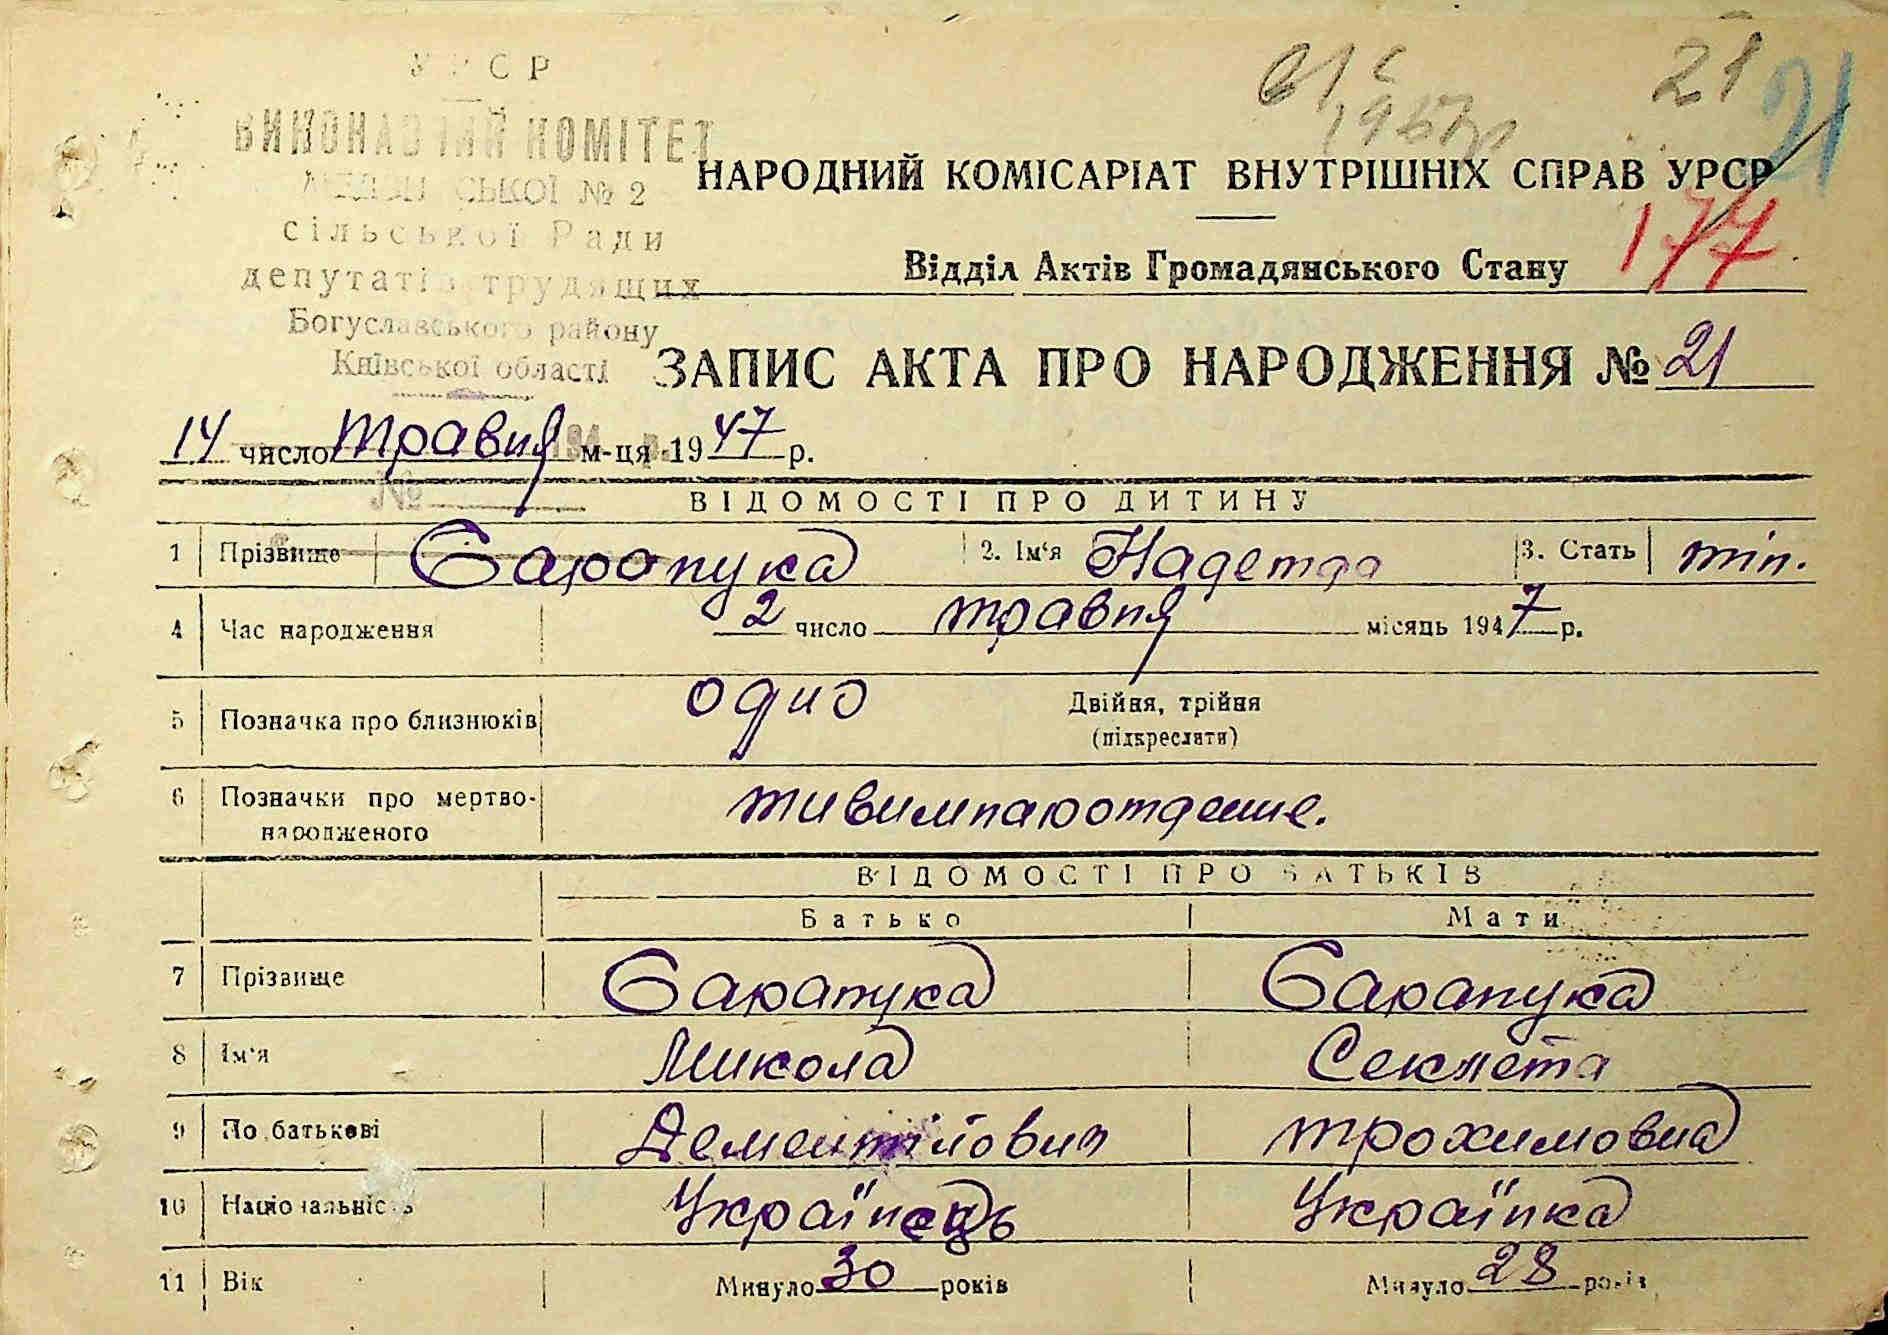 УРСР
ВИКОНАВЧИЙ КОМІТЕТ
СЬКОЇ № 2
сільської Ради
депутатів трудящих
Богуславського району
Київської області
194 р.
№
21
21
177
НАРОДНИЙ КОМІСАРІАТ ВНУТРІШНІХ СПРАВ УРСР
Відділ Актів Громадянського Стану
ЗАПИС АКТА ПРО НАРОДЖЕННЯ № 21
14 число травня м-ця 1947 р.
ВІДОМОСТІ ПРО ДИТИНУ
1 Прізвище Сарапука 2. Ім‘я Надежда 3. Стать жін.
4 Час народження 2 число травня місяць 1947 р.
5 Позначка про близнюків одно Двійня, трійня
(підкреслити)
6 Позначки про мертво-
народженого
ВІДОМОСТІ ПРО БАТЬКІВ
Батько Мати
7 Прізвище Сарапука Сарапука
8 Ім‘я Микола Секлета
9 По батькові Дементійович Трохимовна
10 Національність Українець Українка
11 Вік Минуло 30 років Минуло 28 років